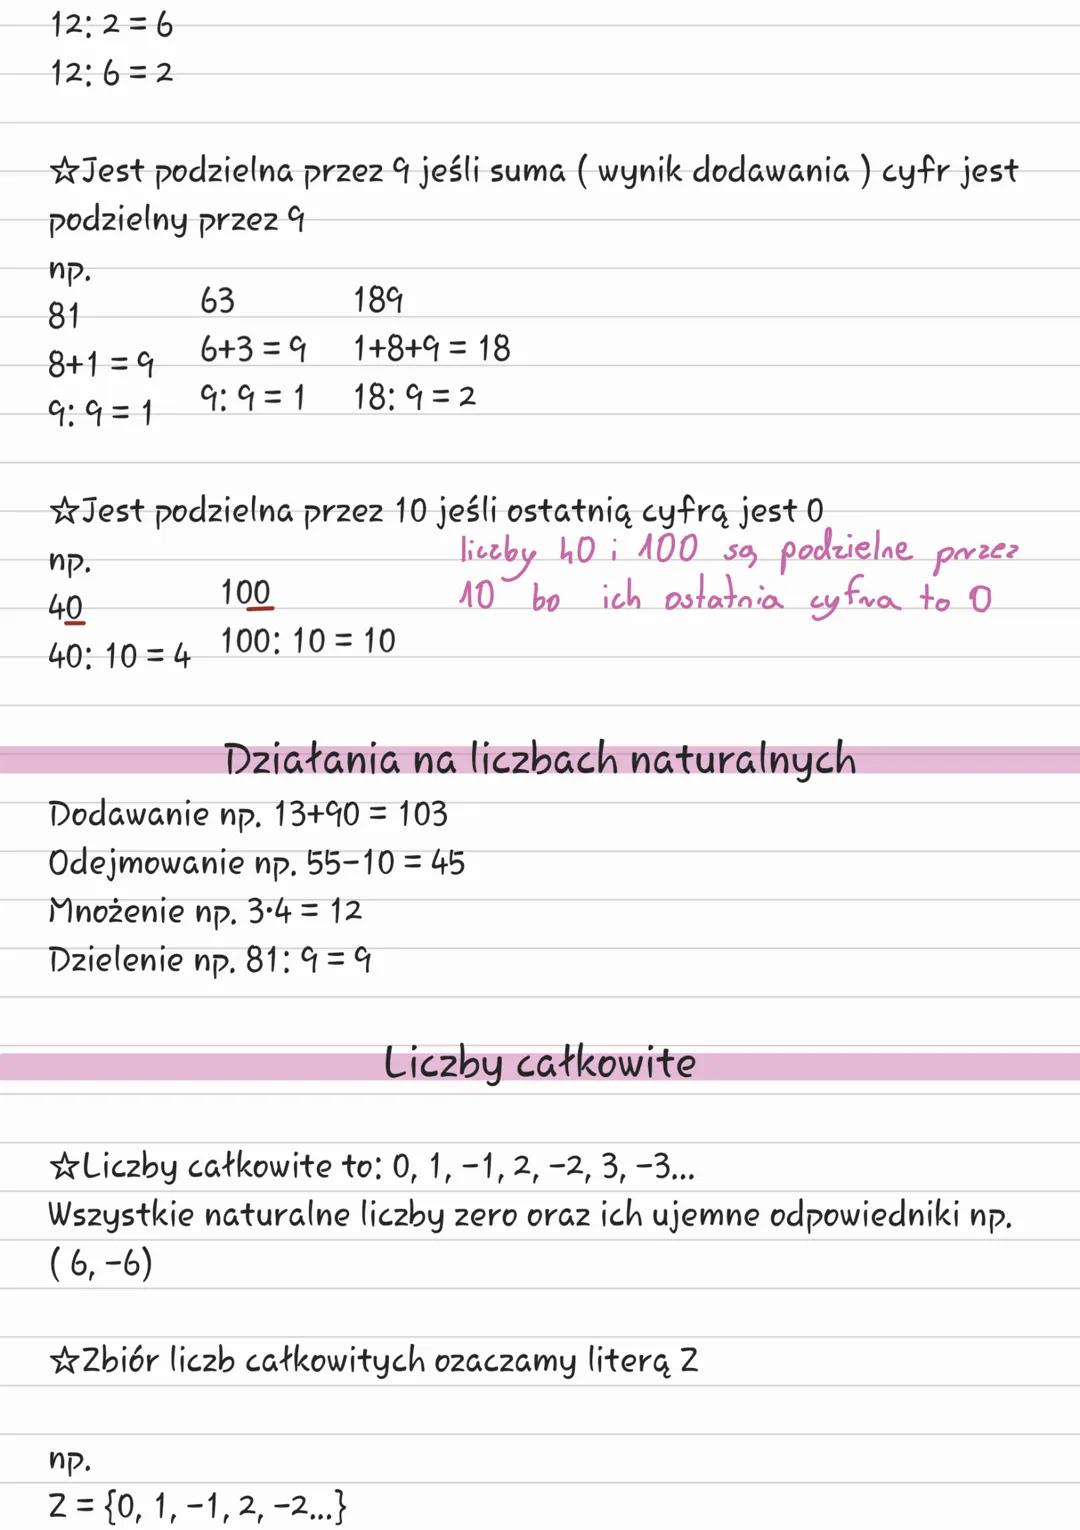 12: 2 = 6
12: 6 = 2
☆Jest podzielna przez 9 jeśli suma ( wynik dodawania ) cyfr jest
podzielny przez 9
np.
81
8+1 = 9
9: 9 = 1
63
6+3 = 9
9: 9 = 1
189
1+8+9 = 18
18: 9 = 2
☆Jest podzielna przez 10 jeśli ostatnią cyfrą jest 0
liczby 40 i 100 są podzielne przez
10 bo ich ostatnia cyfra to 0
np.
40
40: 10 = 4
100
100: 10 = 10
Działania na liczbach naturalnych
Dodawanie np. 13+90 = 103
Odejmowanie np. 55-10 = 45
Mnożenie np. 3·4 = 12
Dzielenie np. 81: 9 = 9
Liczby całkowite
☆Liczby całkowite to: 0, 1, -1, 2, -2, 3, -3...
Wszystkie naturalne liczby zero oraz ich ujemne odpowiedniki np.
( 6, -6)
☆Zbiór liczb całkowitych ozaczamy literą Z
np.
Z = {0, 1, -1, 2, -2...}